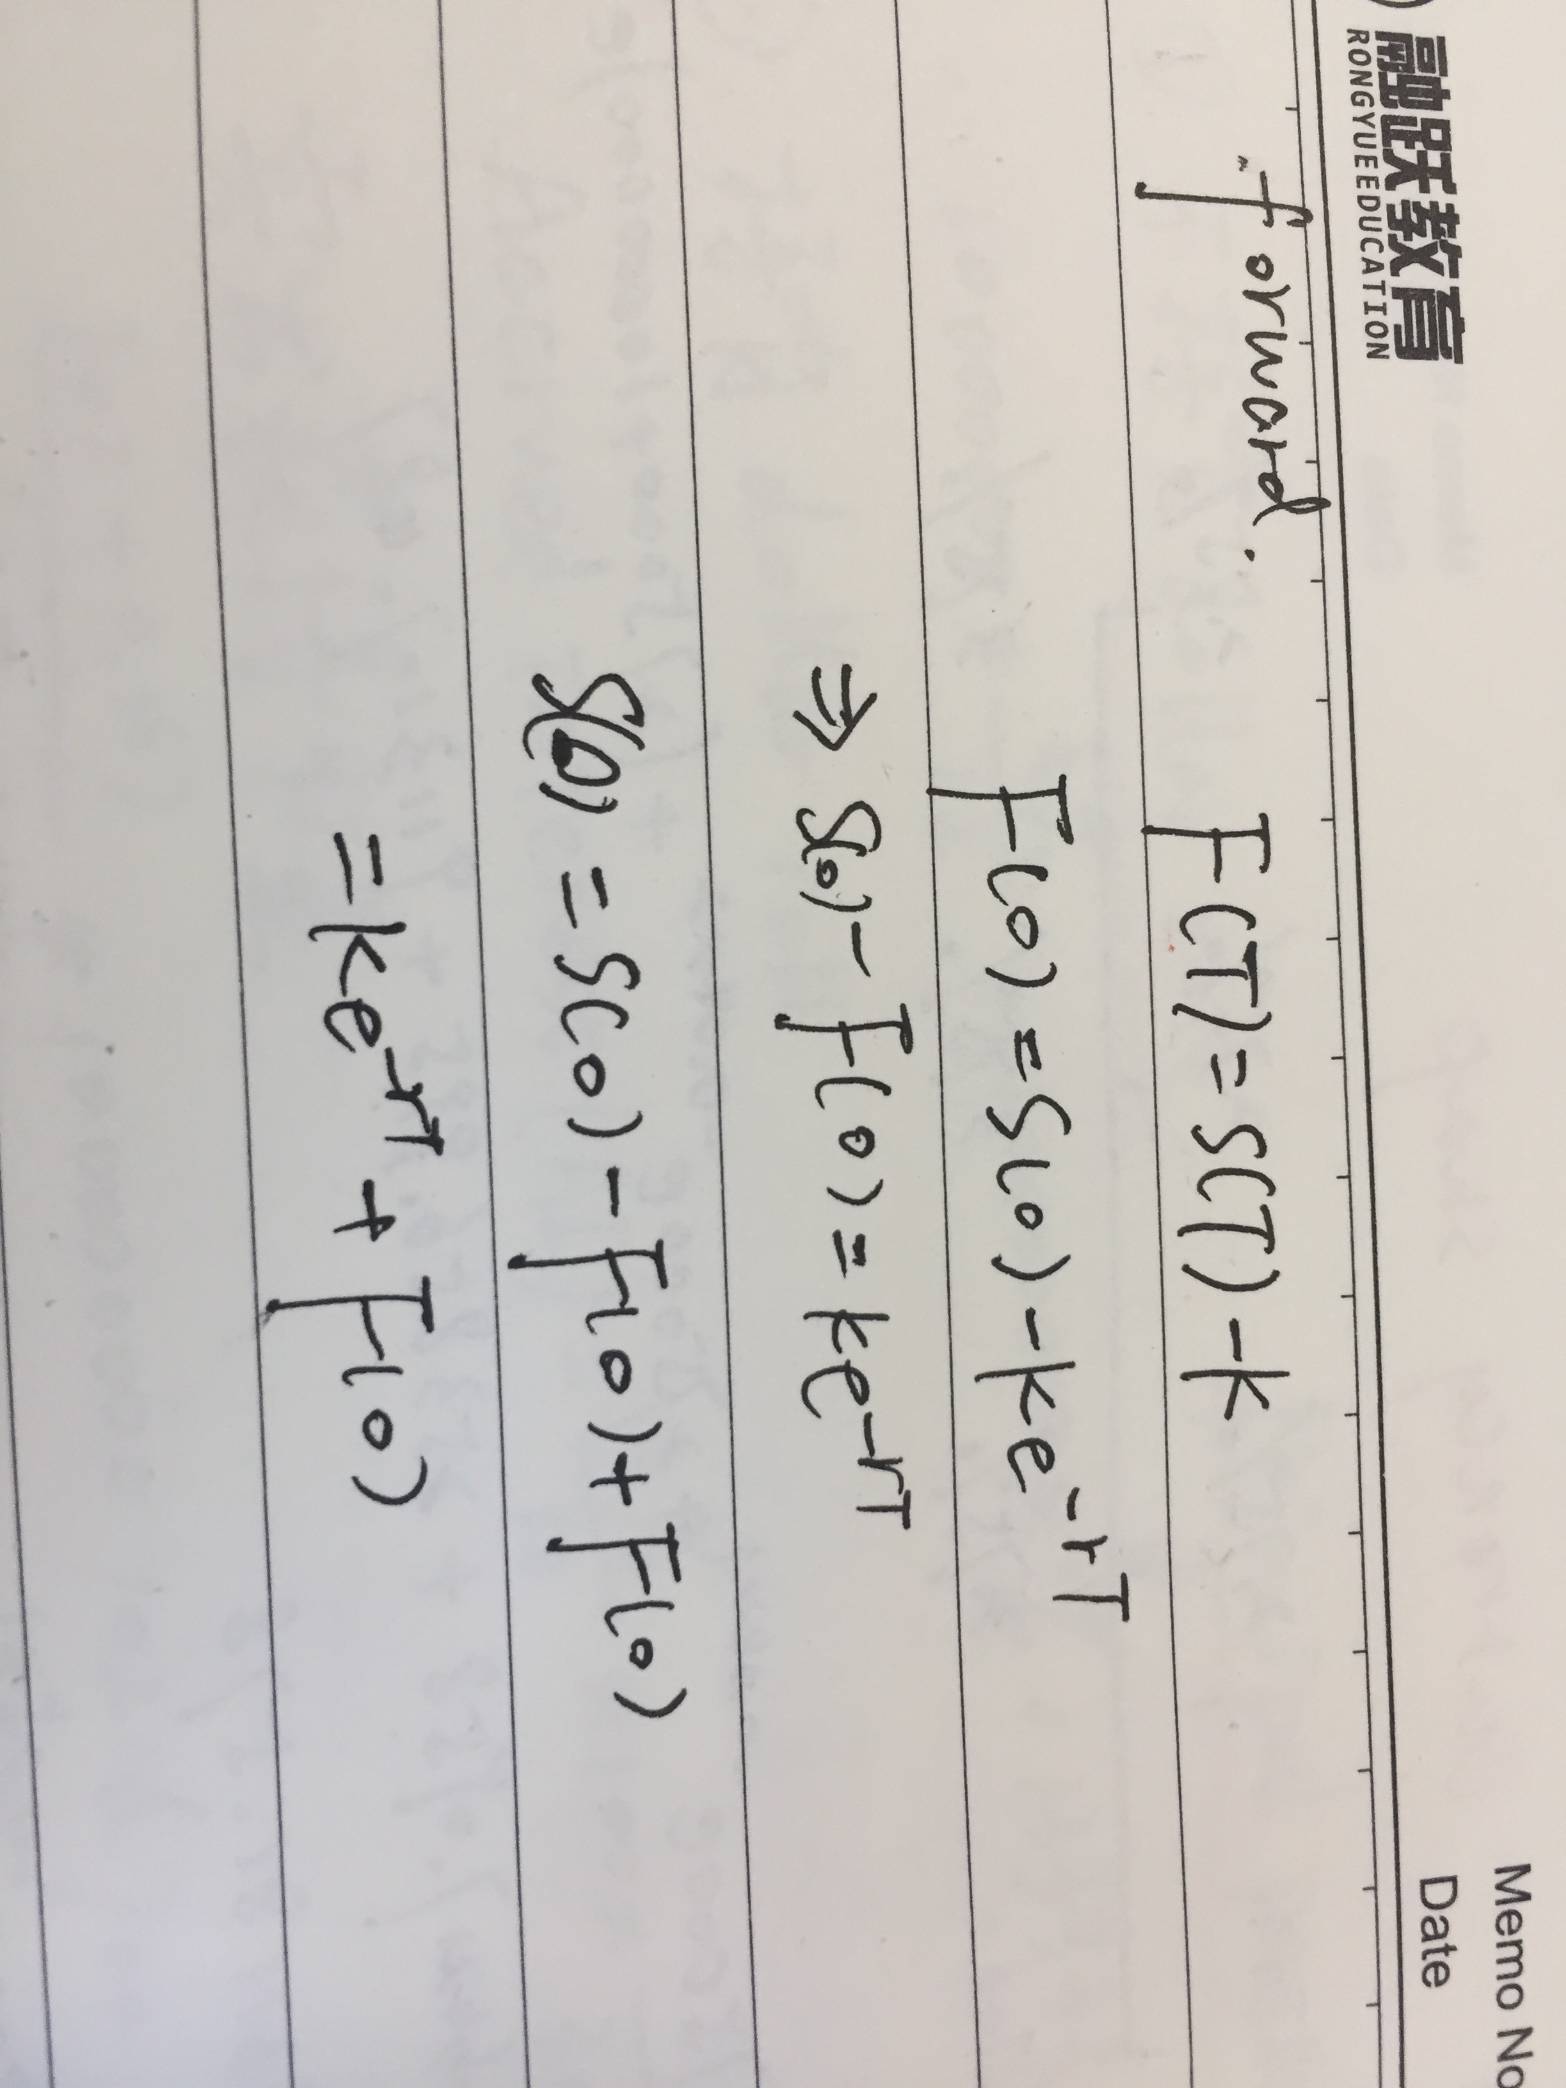 融跃教育
RONGYUEEDUCATION
Memo No
Date
forward.
F(T) = S(T) - k
F(0) = S(0) - ke^-rT
⇒ S(0) - F(0) = ke^-rT
S(0) = S(0) - F(0) + F(0)
= ke^-rT + F(0)